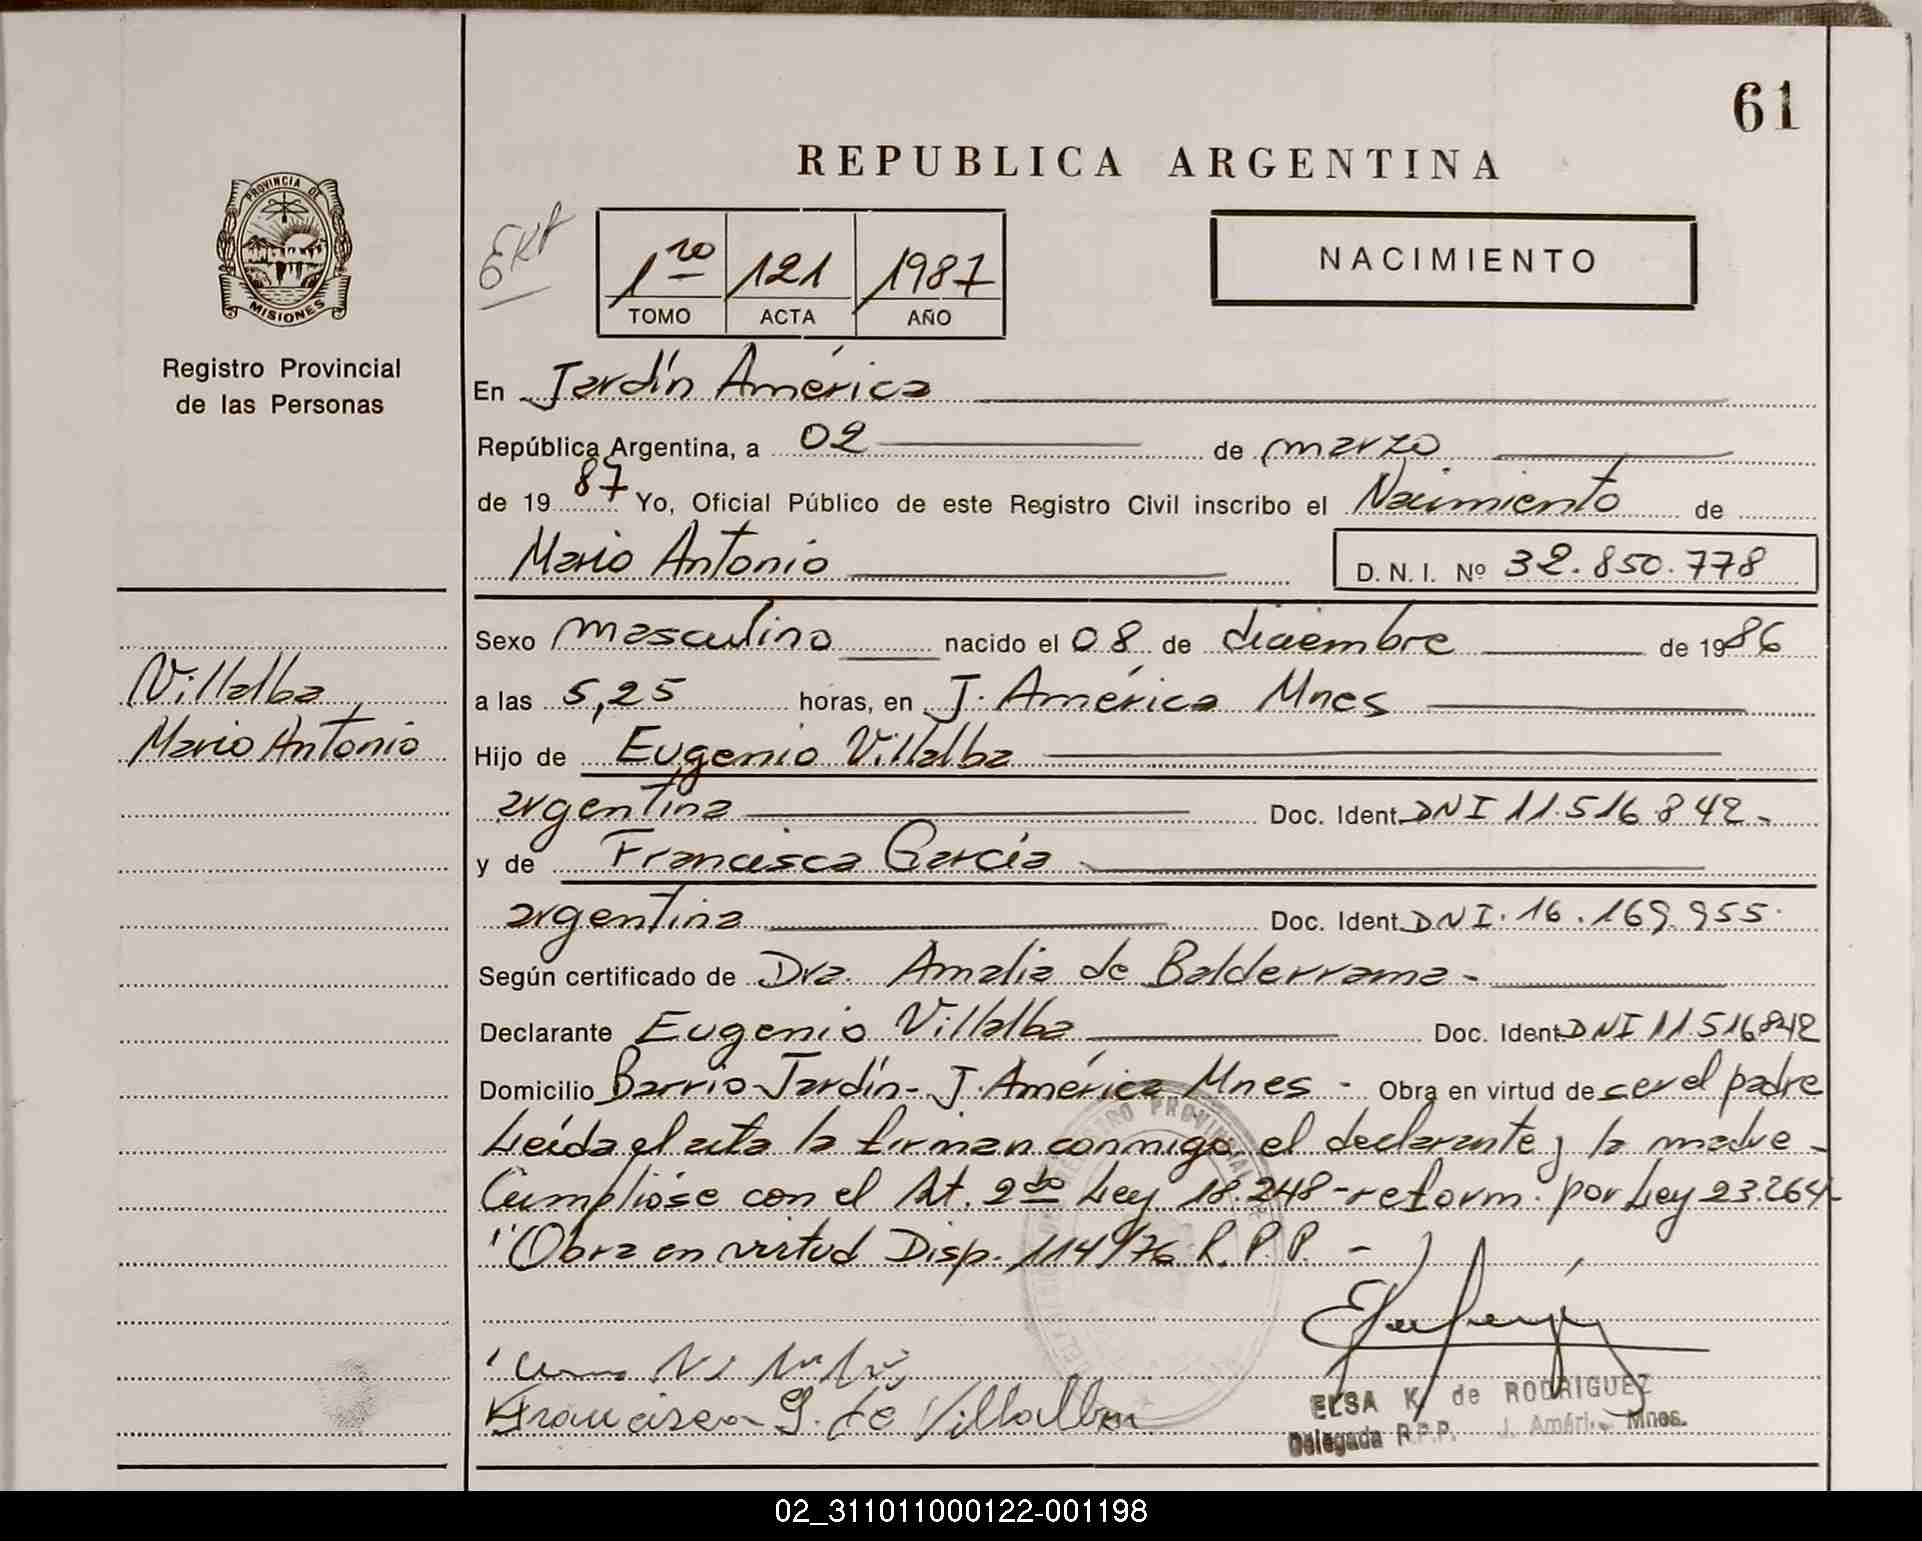 61
REPUBLICA ARGENTINA
PROVINCIA DE
MISIONES
Registro Provincial
de las Personas
1ro 121 1987
TOMO ACTA AÑO
NACIMIENTO
En Jardín América
República Argentina, a 02 de marzo
de 1987 Yo, Oficial Público de este Registro Civil inscribo el Nacimiento de
Mario Antonio D. N. I. Nº 32.850.778
Sexo masculino nacido el 08 de diciembre de 1986
Villalba
Mario Antonio
a las 5,25 horas, en J. América Mnes
Hijo de Eugenio Villalba
argentina Doc. Ident. DNI 11.516.842-
y de Francisca García
argentina Doc. Ident. DNI. 16.169.955.
Según certificado de Dra. Amalia de Balderrama-
Declarante Eugenio Villalba Doc. Ident. DNI 11.516842
Domicilio Barrio Jardín- J. América Mnes - Obra en virtud de ser el padre
Leída el acta la firman conmigo el declarante y la madre-
Cumplióse con el Art. 2do Ley 18.248-reform. por Ley 23.264-
"Obra en virtud Disp. 114/76 R.P.P. -
Francisca G. de Villalba
ELSA K. de RODRIGUEZ
Delegada R.P.P. J. Améri Mnes.
02_311011000122-001198